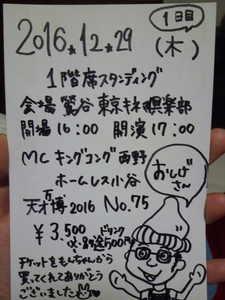 1日目
2016.12.29
(木)
1階席スタンディング
会場 鶯谷 東京キネマ倶楽部
開場16:00 開演17:00
MC キングコング西野
ホームレス小谷
おしげさん
天才万博2016 No.75
¥3,500
ドリンク
別途500円
チケットをもんちゃんから
買ってくれてありがとう
ございました